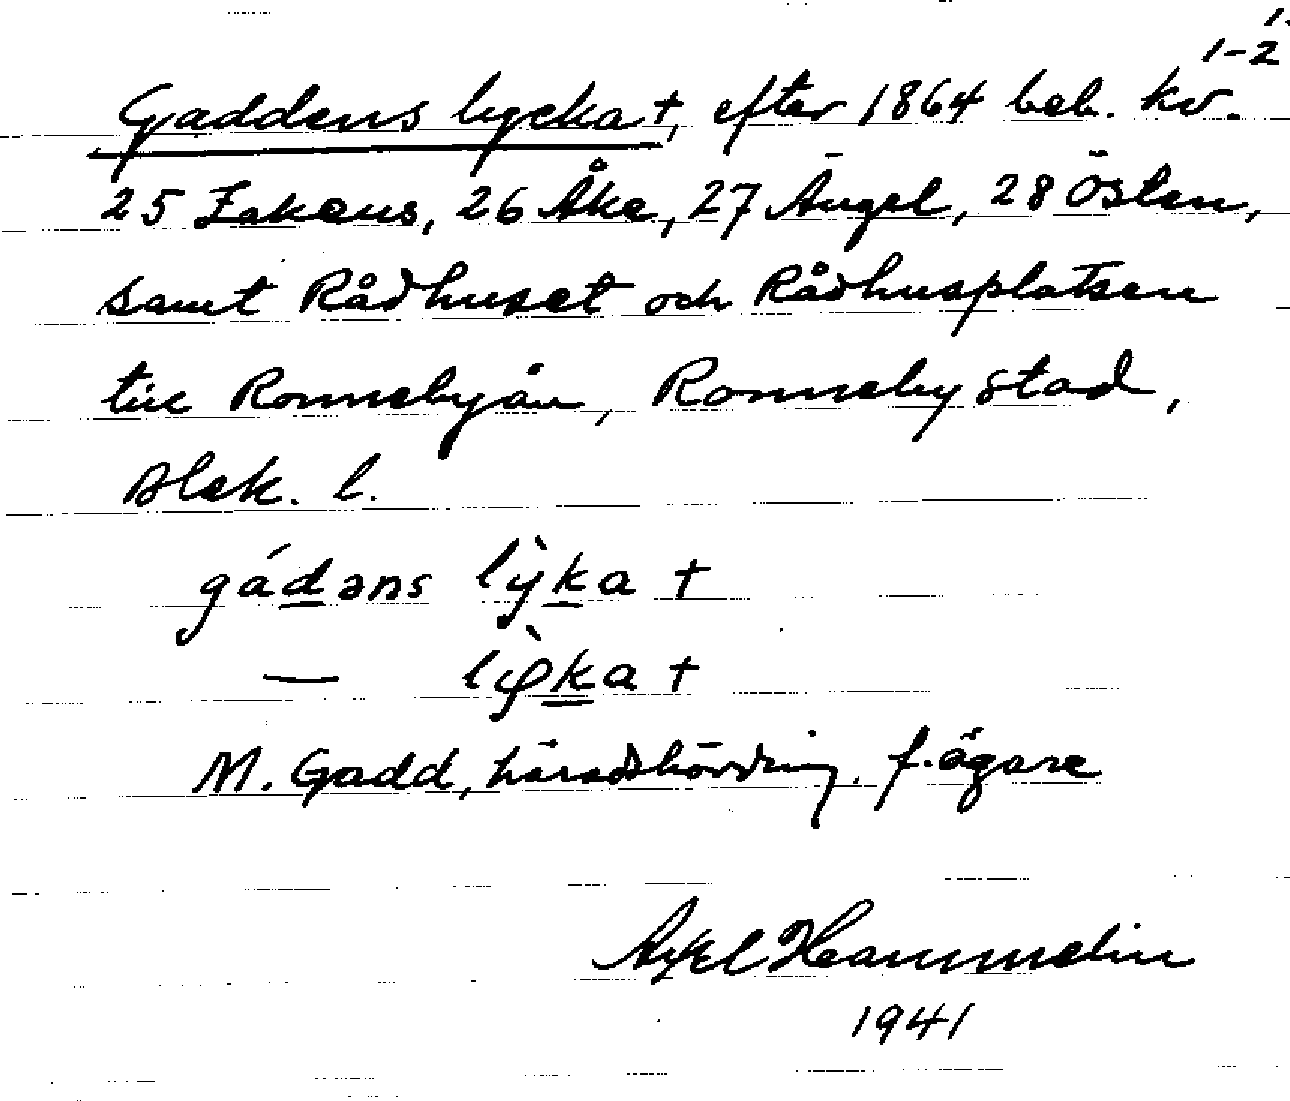 1.
1-2
Gaddens lycka †, efter 1864 beb. kv.
25 Zakeus, 26 Åke, 27 Ängel, 28 Östen,
samt Rådhuset och Rådhusplatsen
till Ronnebyån, Ronneby stad,
Blek. l.
gádəns lỳka †
— lỳka †
M. Gadd, häradshövding, f. ägare
Axel Hammelin
1941